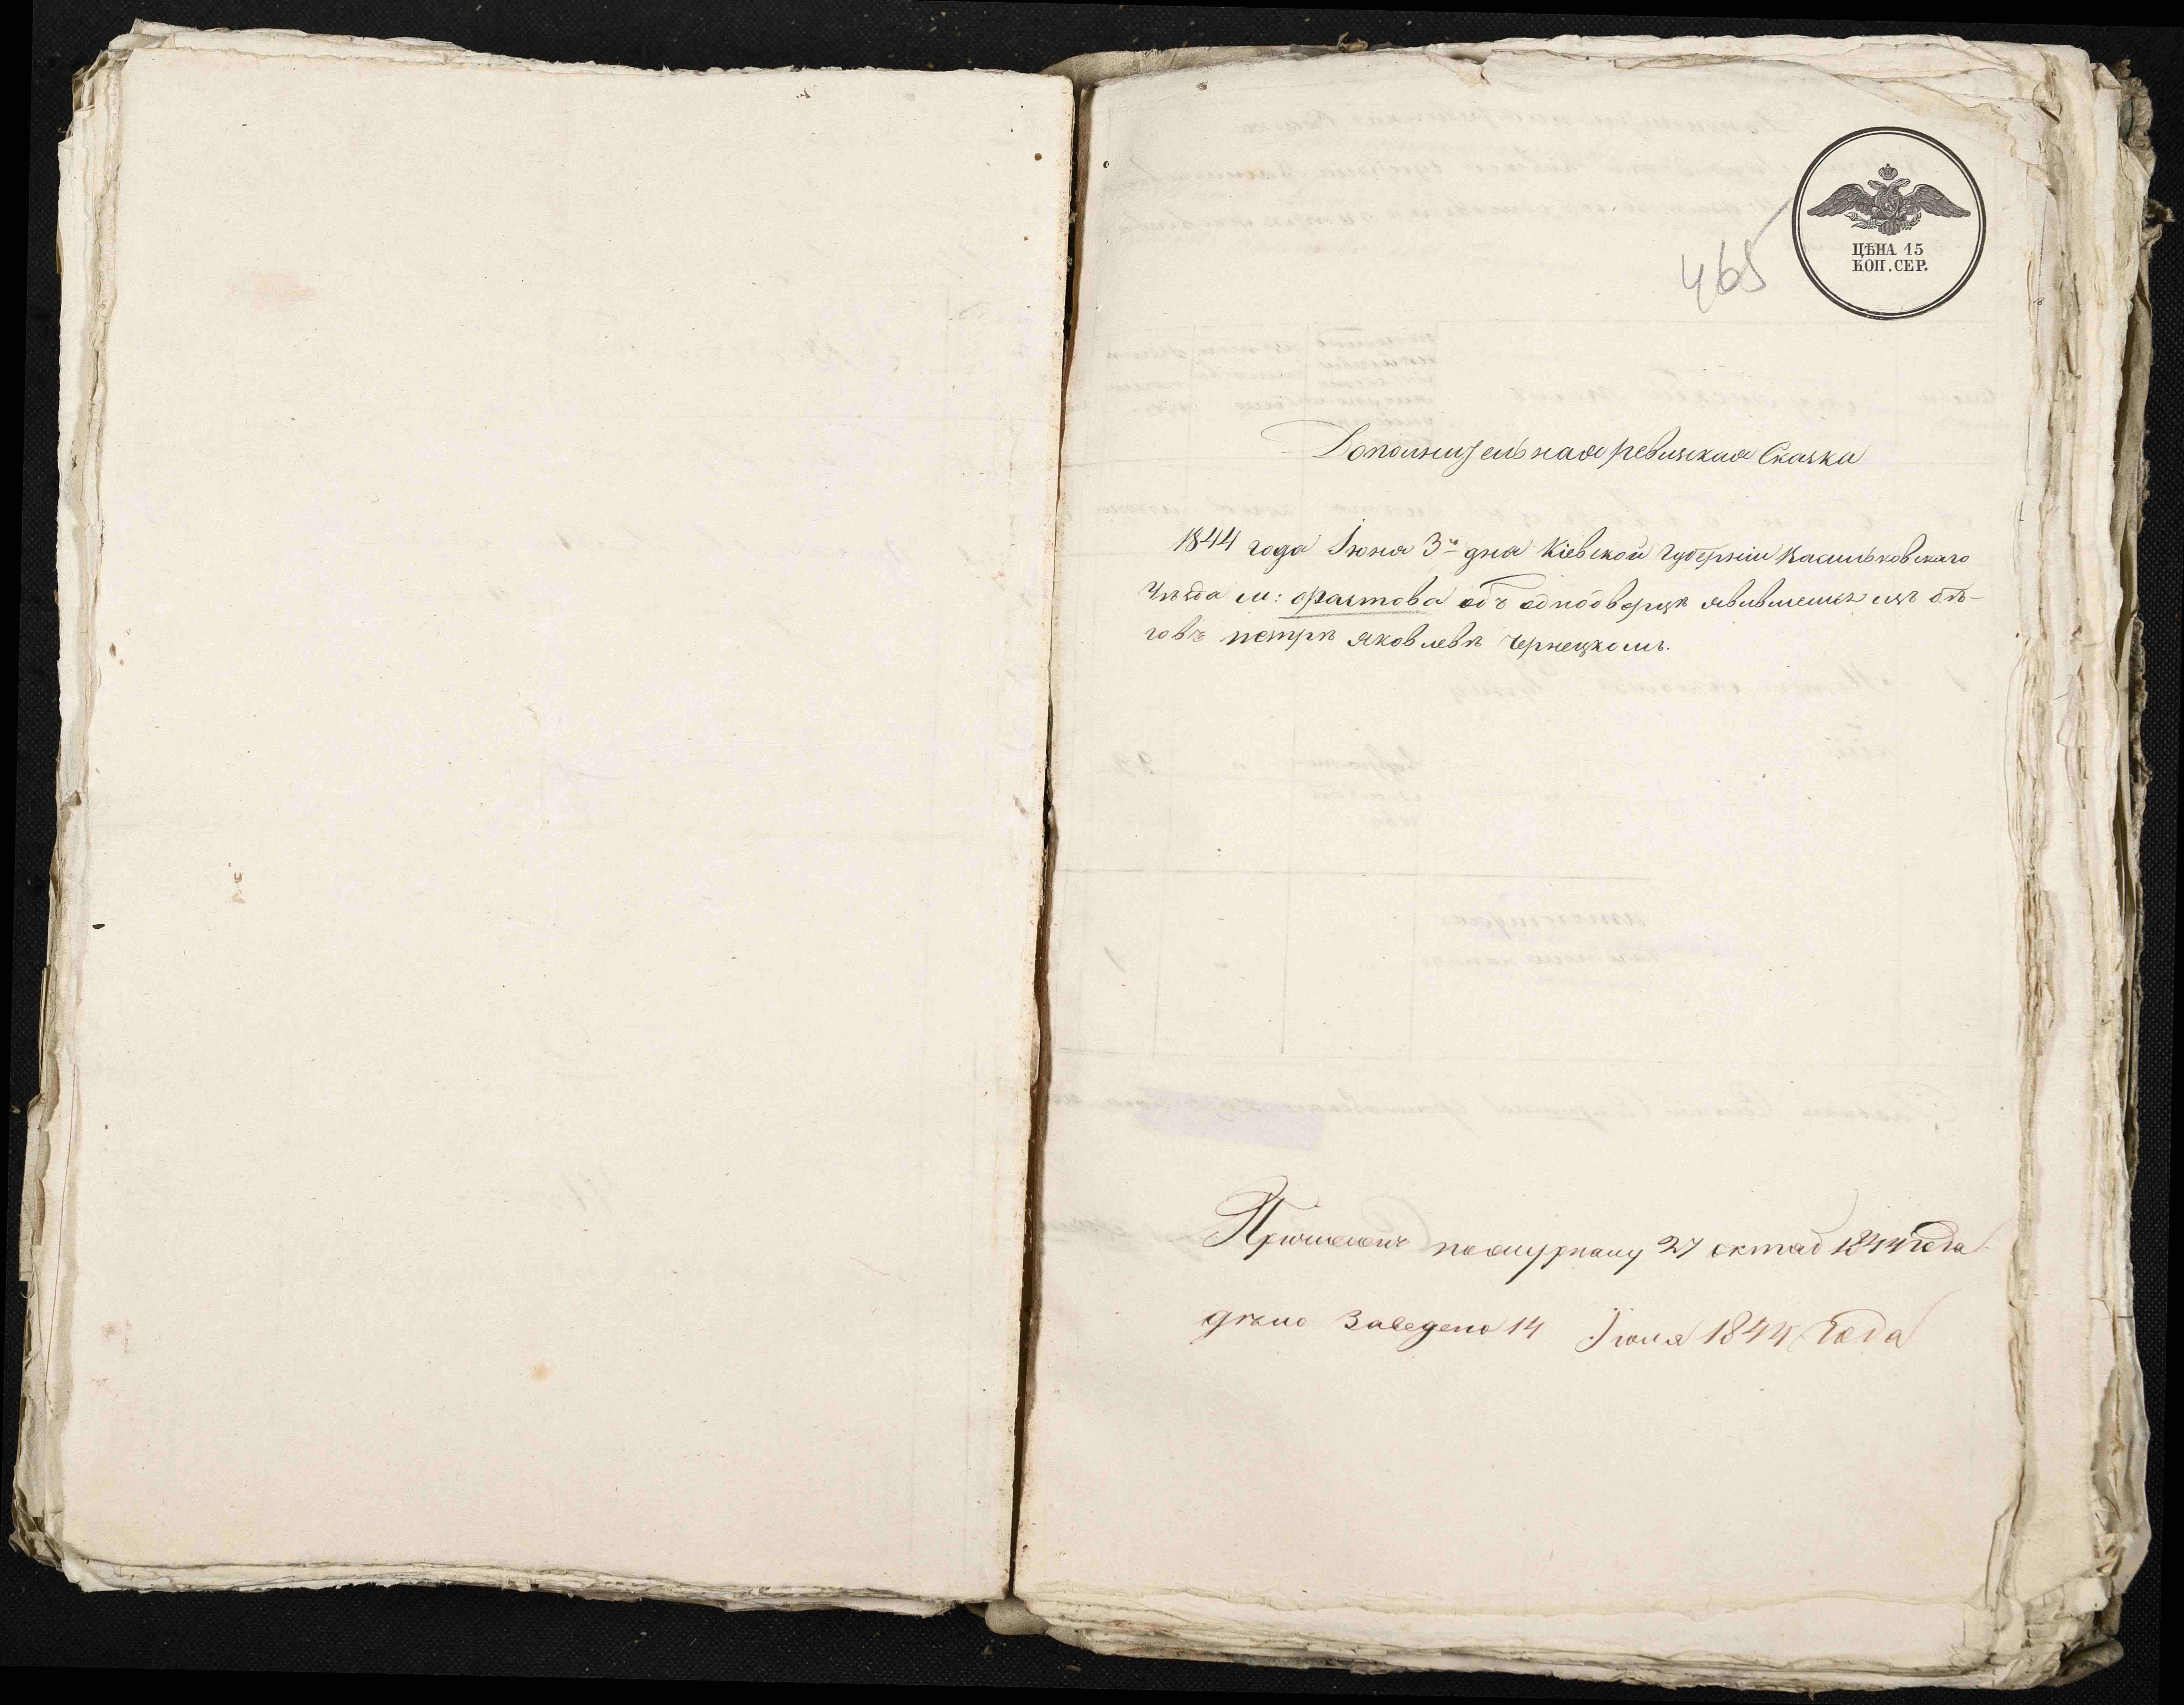 465
ЦѢНА 15
КОП. СЕР.
Дополнительная ревизкая Сказка
1844 года Іюня 3го дня Кіевской Губерніи Васильковскаго
Уѣзда м: Фастова объ однодворцѣ явившемся изъ бѣ-
говъ петрѣ яковлевѣ Чернецкомъ.
Причисленъ по журналу 27 октяб 1844 года
дѣло Заведено 14 Іюля 1844 Года